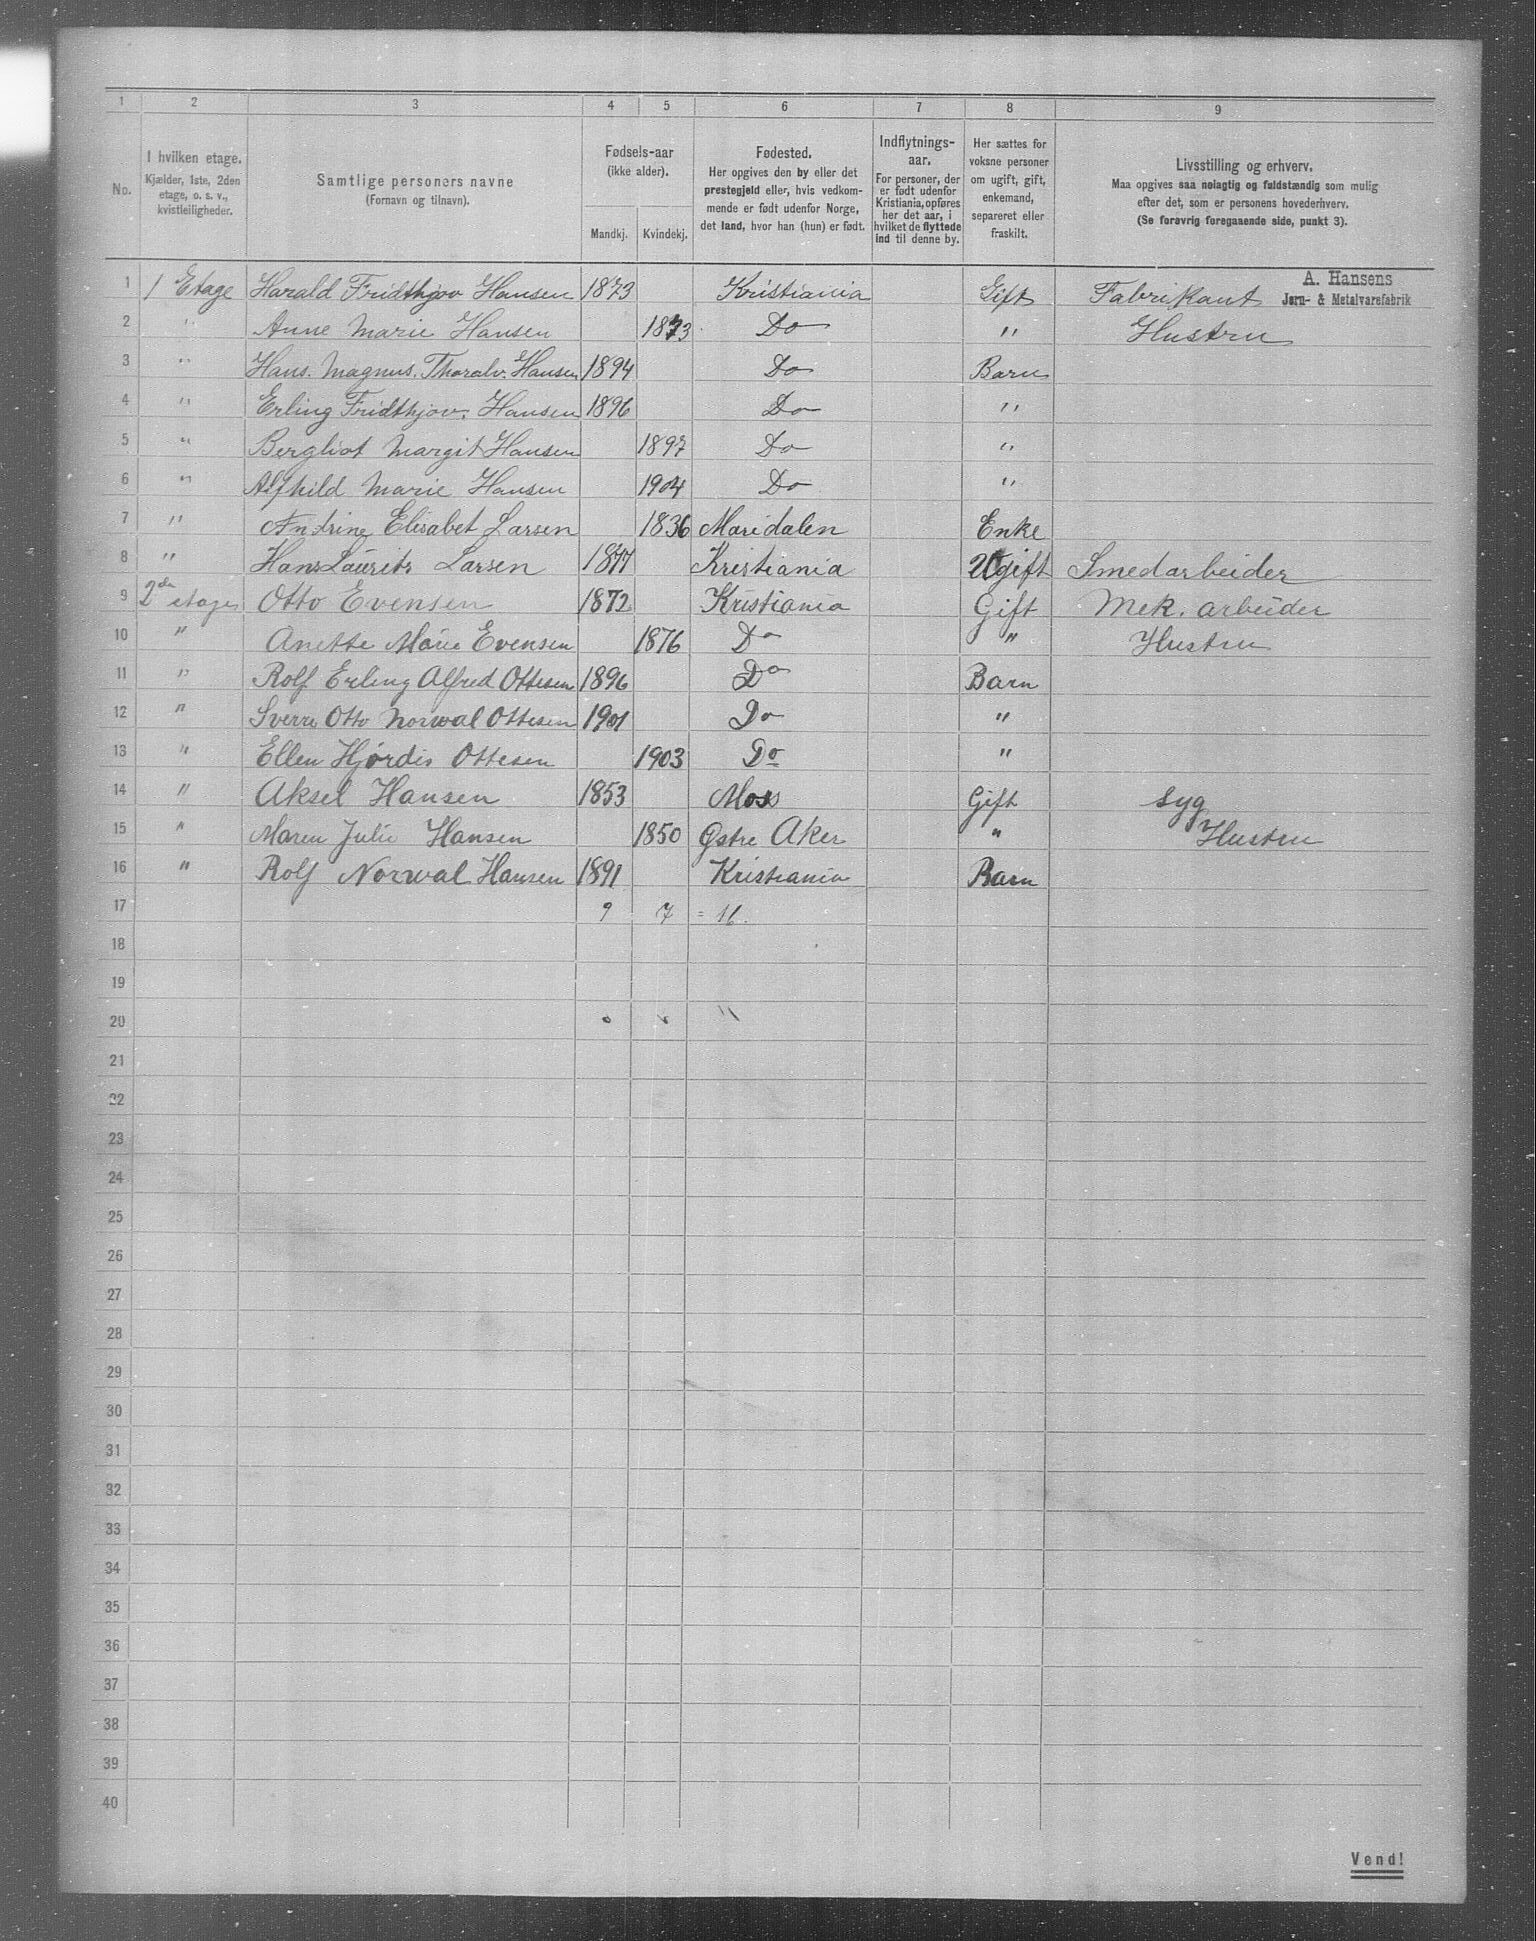 1 2 3 4 5 6 7 8 9
No.
I hvilken etage.
Kjælder, 1ste, 2den
etage, o. s. v.,
kvistleiligheder.
Samtlige personers navne
(Fornavn og tilnavn).
Fødsels-aar
(ikke alder).
Mandkj. Kvindekj.
Fødested.
Her opgives den by eller det
prestegjeld eller, hvis vedkom-
mende er født udenfor Norge,
det land, hvor han (hun) er født.
Indflytnings-
aar.
For personer, der
er født udenfor
Kristiania, opføres
her det aar, i
hvilket de flyttede
ind til denne by.
Her sættes for
voksne personer
om ugift, gift,
enkemand,
separeret eller
fraskilt.
Livsstilling og erhverv.
Maa opgives saa nøiagtig og fuldstændig som mulig
efter det, som er personens hovederhverv.
(Se forøvrig foregaaende side, punkt 3).
1 1 Etage Harald Fridthjov Hansen 1873 Kristiania Gift Fabrikant A. Hansens Jern- & Metalvarefabrik
2 " Anne Marie Hansen 1873 Do " Hustru
3 " Hans. Magnus. Thoralv. Hansen 1894 Do Barn
4 " Erling Fridthjov. Hansen 1896 Do "
5 " Bergliot Margit Hansen 1897 Do "
6 " Alfhild Marie Hansen 1904 Do "
7 " Andrine Elisabet Larsen 1836 Maridalen Enke
8 " Hans Laurits Larsen 1877 Kristiania Ugift Smedarbeider
9 2den etage Otto Evensen 1872 Kristiania Gift Mek. arbeider
10 " Anette Marie Evensen 1876 Do " Hustru
11 " Rolf Erling Alfred Ottesen 1896 Do Barn
12 " Sverre Otto Norwal Ottesen 1901 Do "
13 " Ellen Hjördis Ottesen 1903 Do "
14 " Aksel Hansen 1853 Moss Gift syg
15 " Maren Julie Hansen 1850 Østre Aker " Hustru
16 " Rolf Norwal Hansen 1891 Kristiania Barn
17 9 7 = 16.
18
19
20
21
22
23
24
25
26
27
28
29
30
31
32
33
34
35
36
37
38
39
40
Vend!